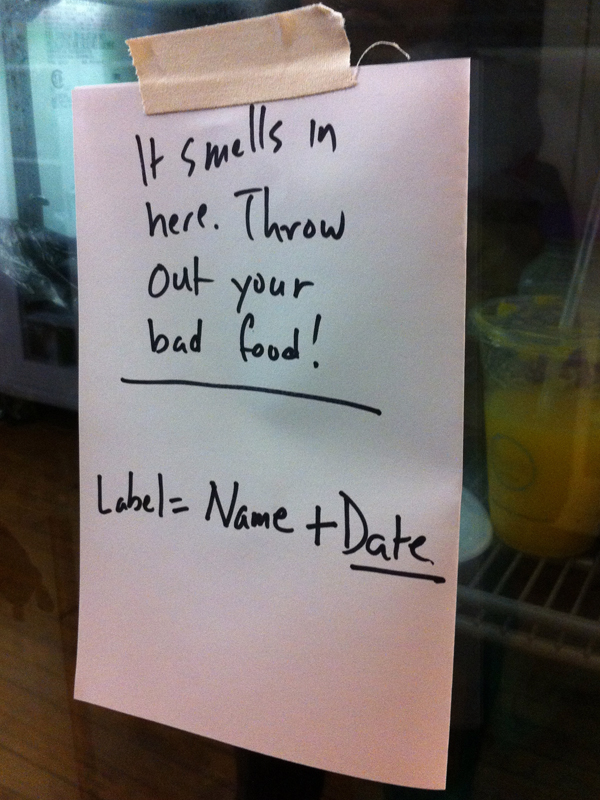 It smells in
here. Throw
out your
bad food!
Label= Name + Date